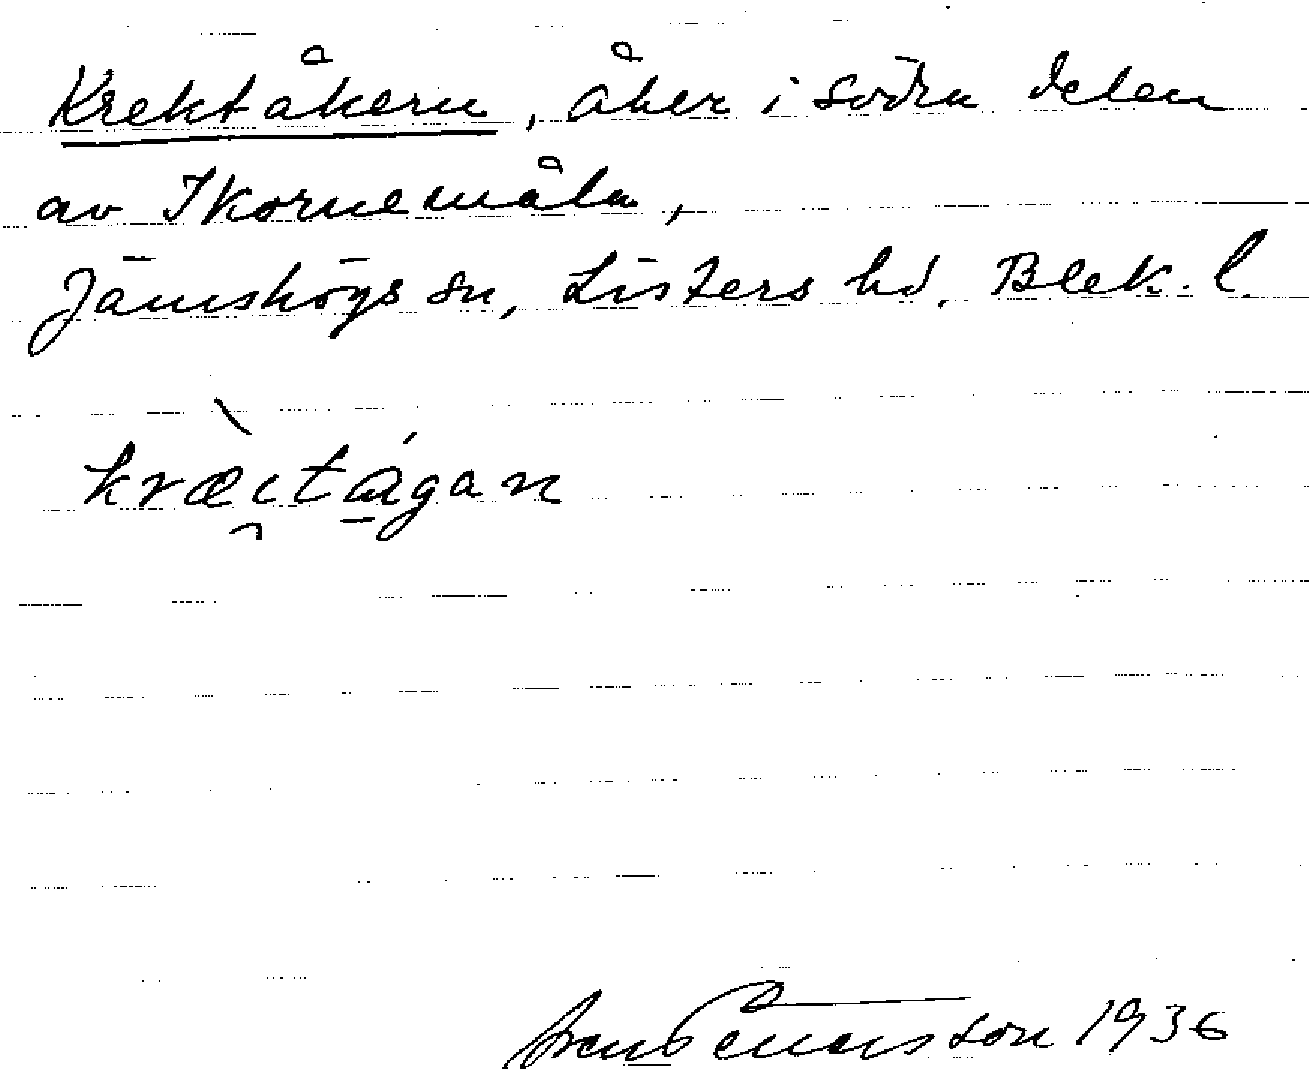 Krektåkern, åker i södra delen
av Ikornemåla,
Jämshögs sn, Listers hd. Blek. l.
kræ̀i̯tá̱gan
Sven Benson 1936